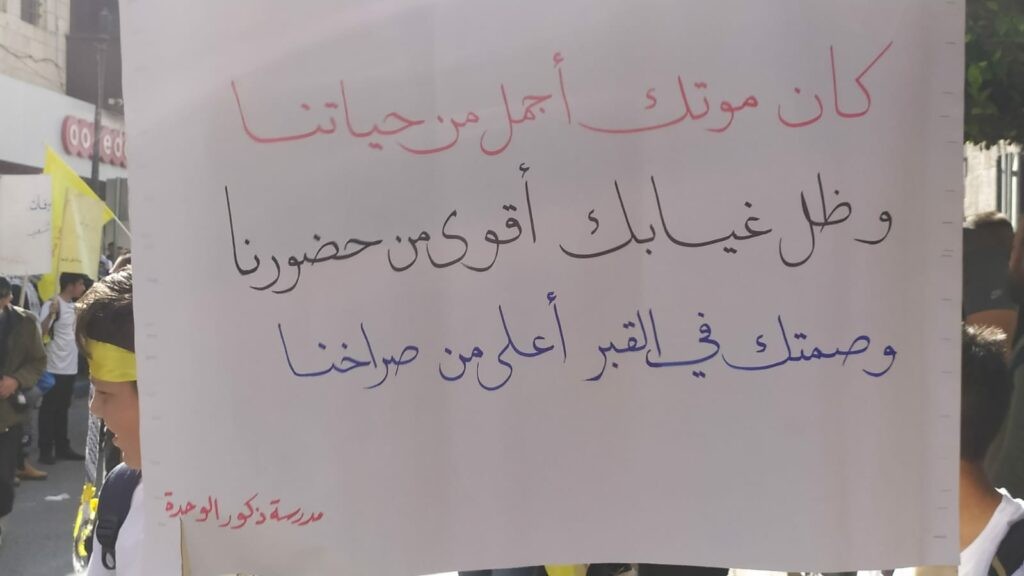 كان موتك أجمل من حياتنا
وظل غيابك أقوى من حضورنا
وصمتك في القبر أعلى من صراخنا
مدرسة ذكور الوحدة